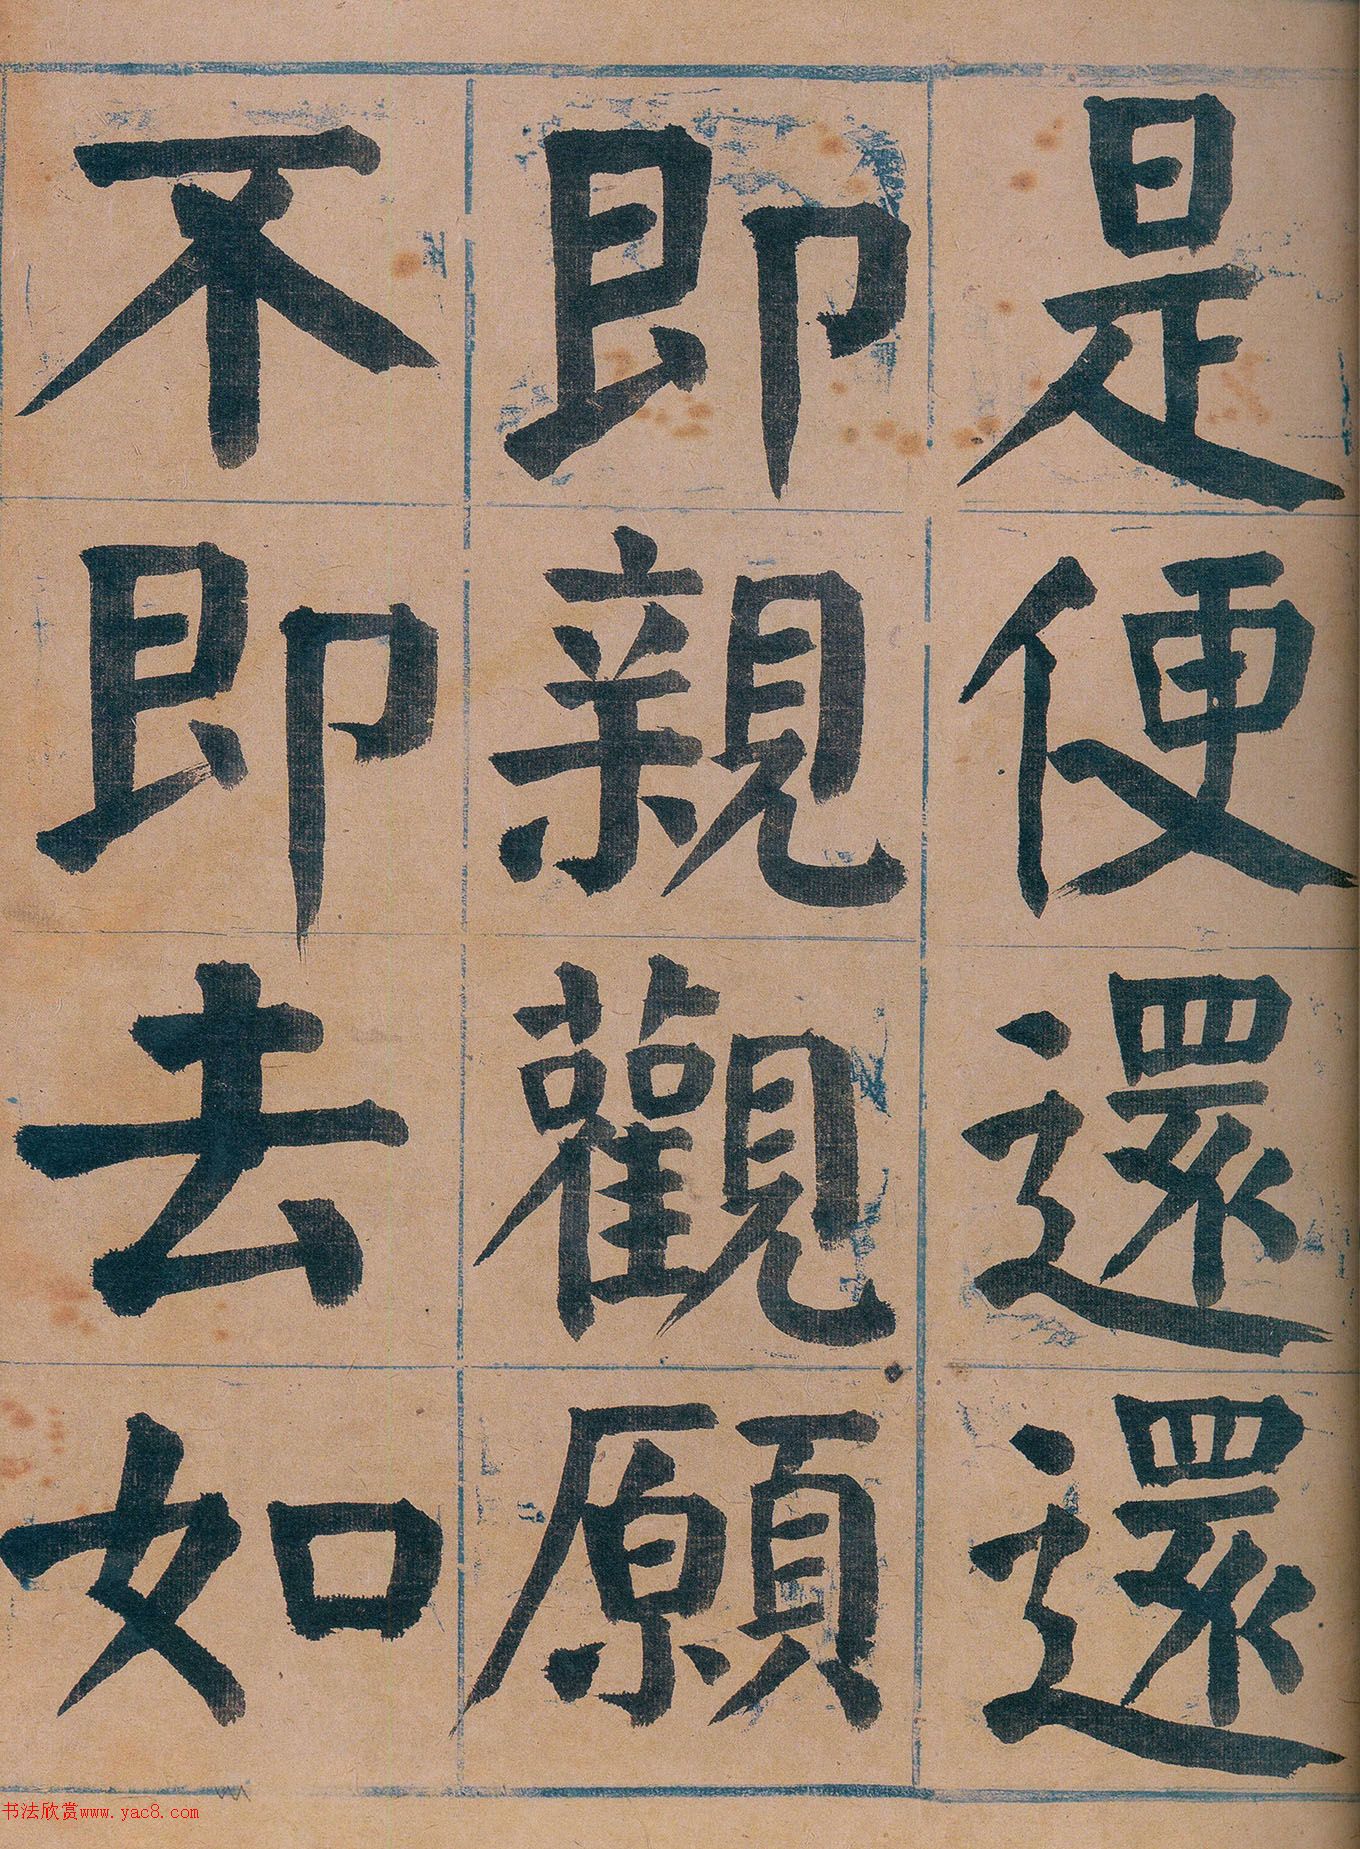 是便還還
即親觀願
不即去如
书法欣赏www.yac8.com